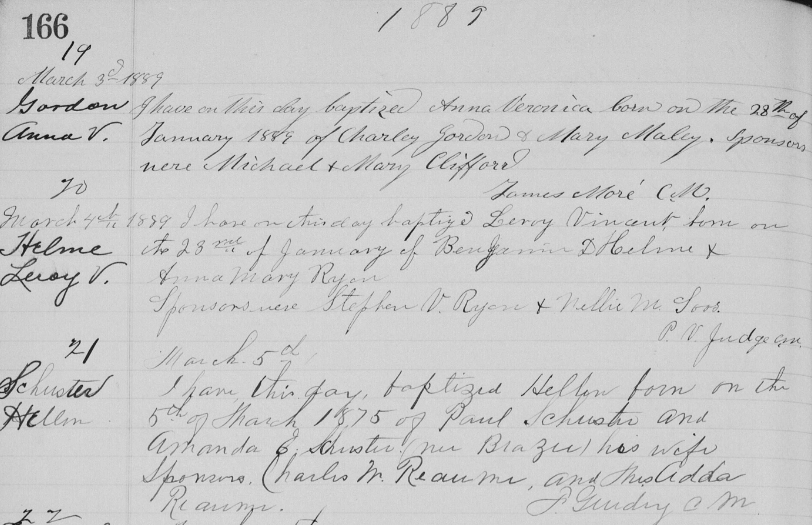 166
1889
19
March 3rd 1889
Gordon I have on this day baptized Anna Veronica born on the 28th of
Anna V. January 1889 of Charley Gordon & Mary Maley. Sponsors
were Michael & Mary Clifford
James Moré C.M.
20
March 4th 1889 I have on this day baptized Leroy Vincent, born on
Helme the 23rd of January of Benjamin D Helme &
Leroy V. Anna Mary Ryan
Sponsors were Stephen V. Ryan & Nellie M. Soos.
P. V. Judge c.m.
21
March 5th
Schuster I have, this day, baptized Hellen born on the
Hellen 5th of March 1875 of Paul Schuster and
Amanda E. Schuster (nee Brazee) his wife
Sponsors, Charles W. Reaume, and Miss Adda
Reaume. C M.
22